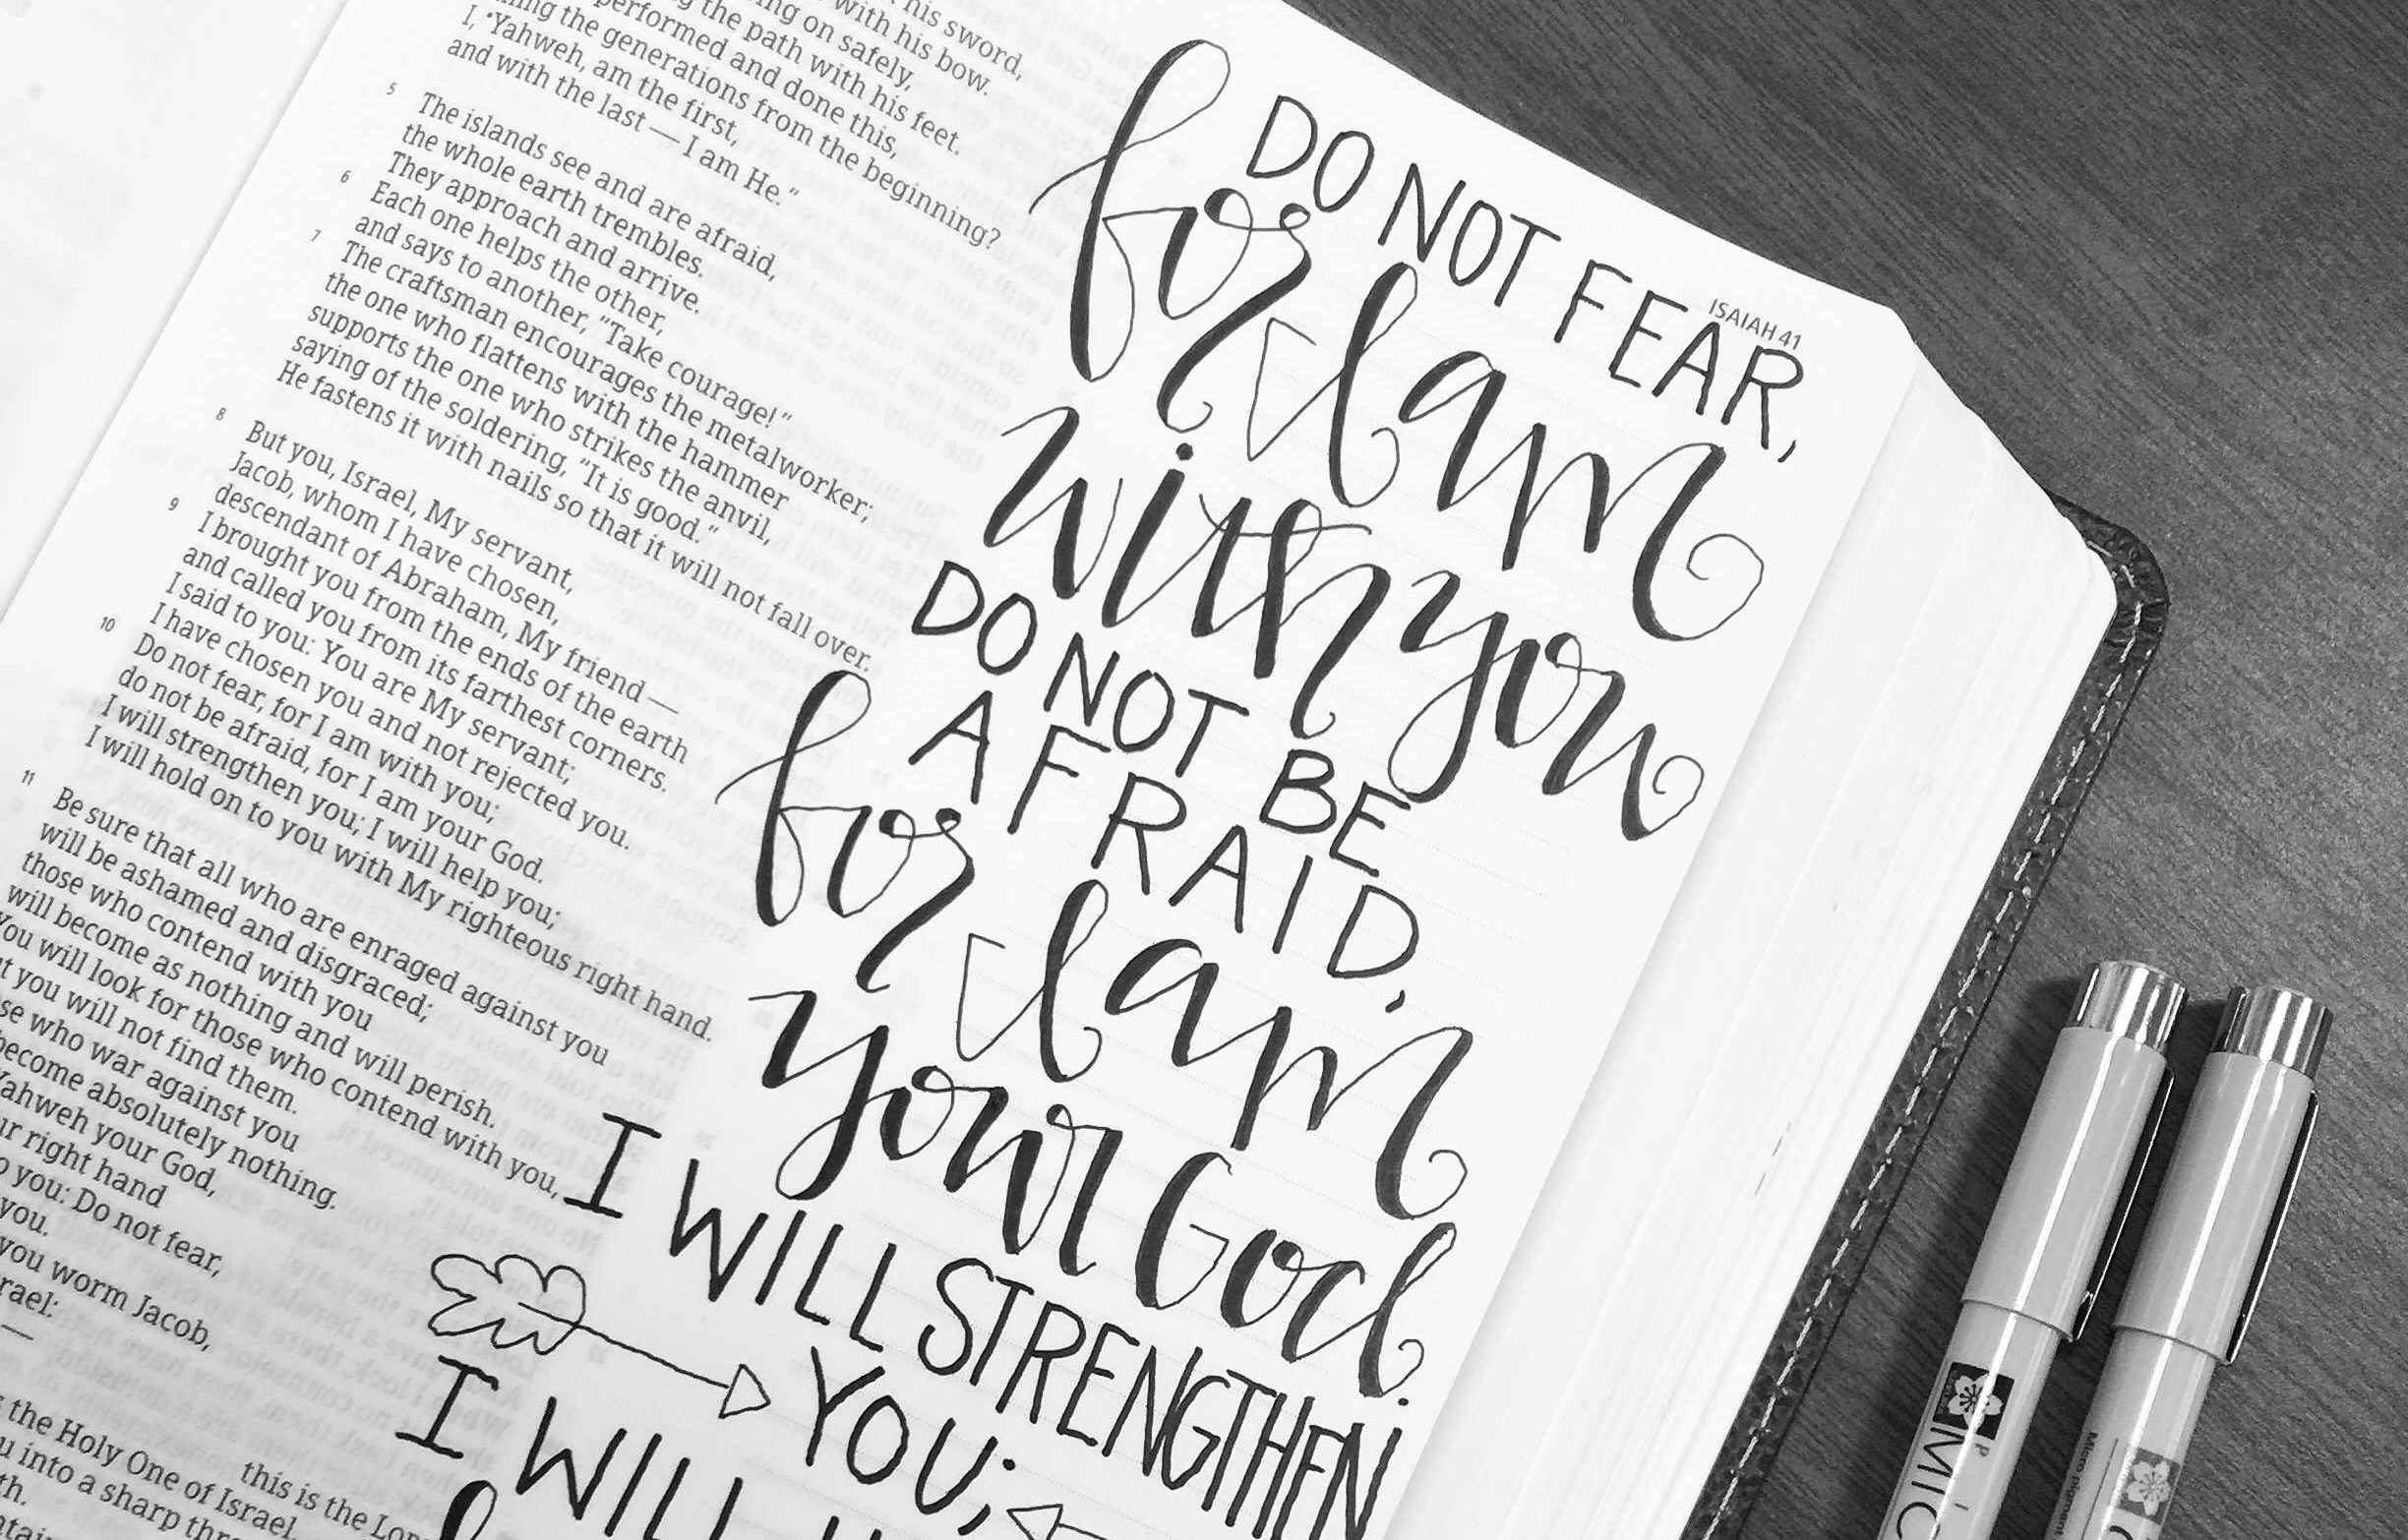 his sword,
with his bow.
ng on safely,
the path with his feet.
performed and done this,
the generations from the beginning?
I, •Yahweh, am the first,
and with the last — I am He.”
5 The islands see and are afraid,
the whole earth trembles.
They approach and arrive.
6 Each one helps the other,
and says to another, “Take courage!”
7 The craftsman encourages the metalworker;
the one who flattens with the hammer
supports the one who strikes the anvil,
saying of the soldering, “It is good.”
He fastens it with nails so that it will not fall over.
8 But you, Israel, My servant,
Jacob, whom I have chosen,
descendant of Abraham, My friend —
9 I brought you from the ends of the earth
and called you from its farthest corners.
I said to you: You are My servant;
I have chosen you and not rejected you.
10 Do not fear, for I am with you;
do not be afraid, for I am your God.
I will strengthen you; I will help you;
I will hold on to you with My righteous right hand.
11 Be sure that all who are enraged against you
will be ashamed and disgraced;
those who contend with you
will become as nothing and will perish.
You will look for those who contend with you,
t you will not find them.
se who war against you
become absolutely nothing.
Yahweh your God,
ur right hand
o you: Do not fear,
you.
you worm Jacob,
rael:
—
this is the Lor
the Holy One of Israel.
u into a sharp thr
th.
ntain
ISAIAH 41
DO NOT FEAR,
for I am
with you
DO NOT BE
AFRAID,
for I am
your God.
I WILL STRENGTHEN
YOU;
I WILL H
MIC
Micro pigment